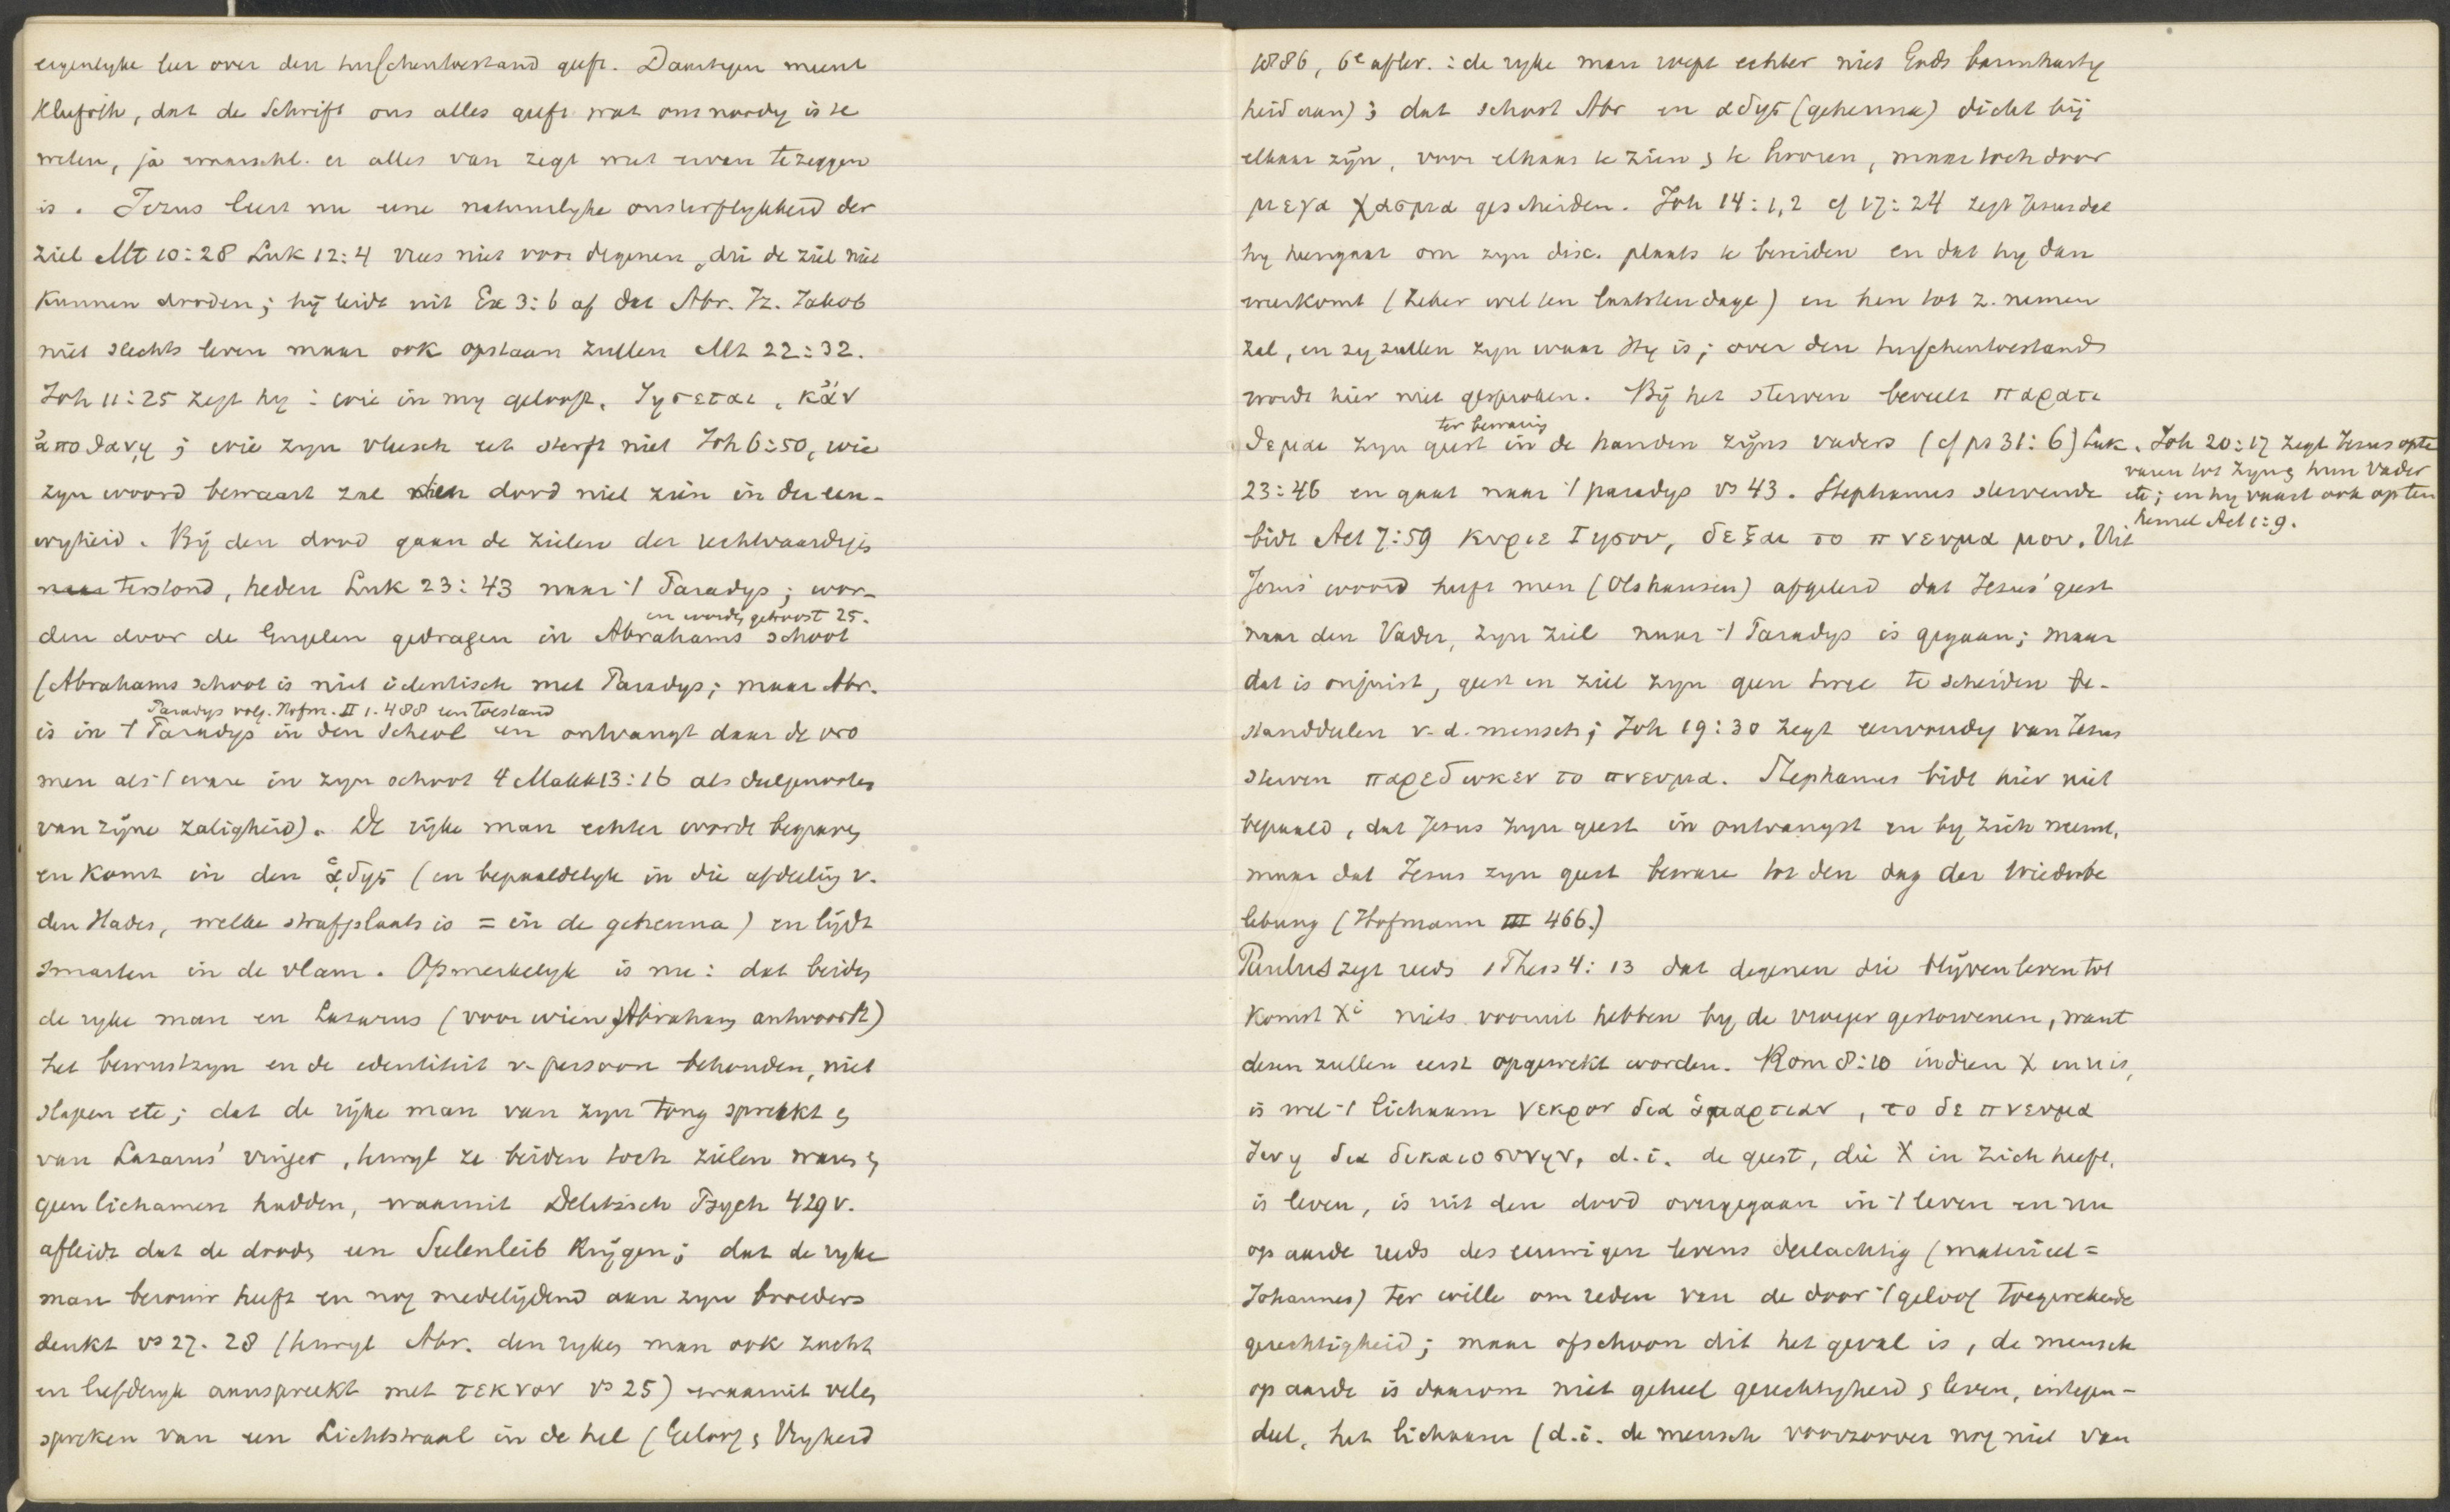 eigenlyke leer over den tusschentoestand geeft. Daartegen meent
Kliefoth, dat de Schrift ons alles geeft wat ons noodig is te
weten, ja waarschl. er alles van zegt wat ervan te zeggen
is. Jezus leert nu eene natuurlyke onsterflykheid der
ziel Mt 10:28 Luk 12:4 vrees niet voor degenen, die de ziel niet
kunnen dooden; hij leidt uit Ex 3:6 af dat Abr. Iz. Jakob
niet slechts leven maar ook opstaan zullen Mt 22:32.
Joh 11:25 zegt hy: wie in my gelooft, ζησεται, κἂν
ἀποθανῃ; wie zyn vleesch eet sterft niet Joh 6:50, wie
zyn woord bewaart zal den dood niet zien in der eeu-
wigheid. Bij den dood gaan de zielen der rechtvaardigen
naar terstond, heden Luk 23:43 naar 't Paradys; wor-
en wordt getroost 25.
den door de Engelen gedragen in Abrahams schoot
(Abrahams schoot is niet identisch met Paradys; maar Abr.
Paradys volg. Hofm. II 1.488 een toestand
is in 't Paradys in den Scheol en ontvangt daar de vro
men als 't ware in zyn schoot 4 Makk 13:16 als deelgenooten
van zijne zaligheid). De rijke man echter wordt begraven
en komt in den ᾅδης (en bepaaldelyk in die afdeeling v.
den Hades, welke strafplaats is = in de gehenna) en lijdt
smarten in de vlam. Opmerkelyk is nu: dat beiden
de ryke man en Lazarus (voor wien Abraham antwoordt)
het bewustzyn en de identiteit v. persoon behouden, niet
slapen etc; dat de rijke man van zyn tong spreekt en
van Lazarus' vinger, terwyl ze beiden toch zielen waren en
geen lichamen hadden, waaruit Delitzsch Psych 429 v.
afleidt dat de dooden een Seelenleib krijgen; dat de ryke
man berouw heeft en nog medelijdend aan zyn broeders
denkt vs 27. 28 (terwyl Abr. den ryken man ook zacht
en liefderyk aanspreekt met τεκνον vs 25) waaruit velen
spreken van een Lichtstraal in de hel (Geloof & Vryheid
1886, 6e aflev.: de ryke man roept echter niet Gods barmhartig
heid aan); dat schoot Abr en αδης (gehenna) dicht bij
elkaar zijn, voor elkaar te zien & te hooren, maar toch door
μεγα χασμα gescheiden. Joh 14:1,2 cf 17:24 zegt Jezus dat
hy heengaat om zyn disc. plaats te bereiden en dat hy dan
weerkomt (zeker wel ten laatsten dage) en hen tot z. nemen
zal, en zy zullen zyn waar Hy is; over den tusschentoestand
wordt hier niet gesproken. Bij het sterven beveelt παρατι
ter bewaring
θεμαι zyn geest in de handen zijns vaders (cf ps 31:6) Luk.
23:46 en gaat naar 't paradys vs 43. Stephanus stervende
Joh 20:17 zegt Jezus opte
varen tot Zyn en hun Vader
etc; en hy vaart ook op ten
hemel Act 1:9.
bidt Act 7:59 κυριε Ιησου, δεξαι το πνευμα μου. Uit
Jezus' woord heeft men (Olshausen) afgeleid dat Jezus' geest
naar den Vader, zyn ziel naar 't Paradys is gegaan; maar
dat is onjuist, geest en ziel zyn geen twee te scheiden be-
standdeelen v. d. mensch; Joh 19:30 zegt eenvoudig van Jezus
sterven παρεδωκεν το πνευμα. Stephanus bidt hier niet
bepaald, dat Jezus zyn geest in ontvangst en by zich neemt,
maar dat Jezus zyn geest beware tot den dag der Wiederbe
lebung (Hofmann III 466.)
Paulus zegt reeds 1 Thess 4:13 dat degenen die blijven leven tot
komst Xi niets vooruit hebben by de vroeger gestorvenen, want
dezen zullen eerst opgewekt worden. Rom 8:10 indien X in u is,
is wel 't lichaam νεκρον δια ἁμαρτιαν, το δε πνευμα
ζωη δια δικαιοσυνην, d.i. de geest, die X in zich heeft,
is leven, is uit den dood overgegaan in 't leven en nu
op aarde reeds des eeuwigen levens deelachtig (materieel =
Johannes) ter wille om reden van de door 't geloof toegerekende
gerechtigheid; maar ofschoon dit het geval is, de mensch
op aarde is daarom niet geheel gerechtigheid & leven, integen-
deel, het lichaam (d.i. de mensch voorzoover nog niet van